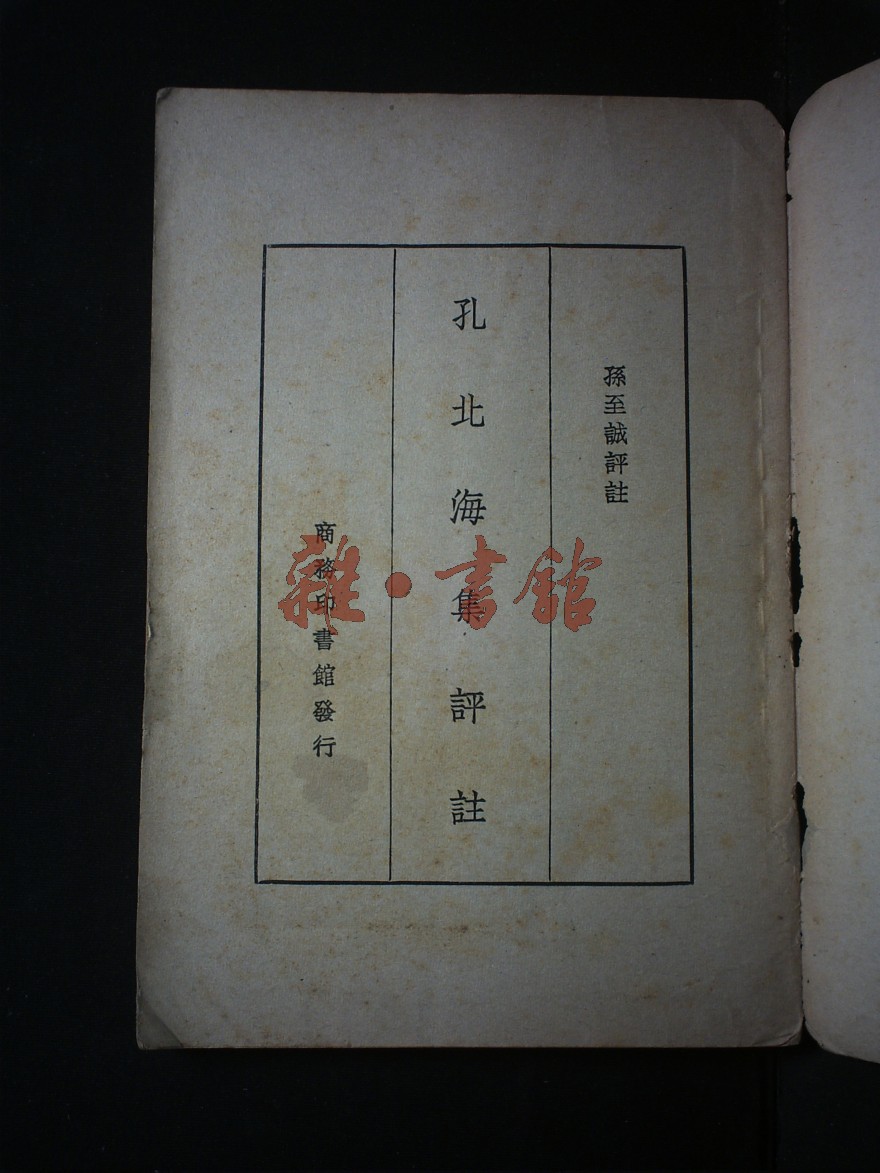 孫至誠評註
孔北海集評註
商務印書館發行
雜·書館